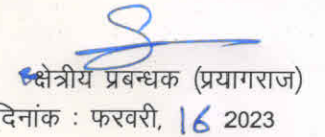 क्षेत्रीय प्रबन्धक (प्रयागराज)
दिनांक : फरवरी, 16 2023